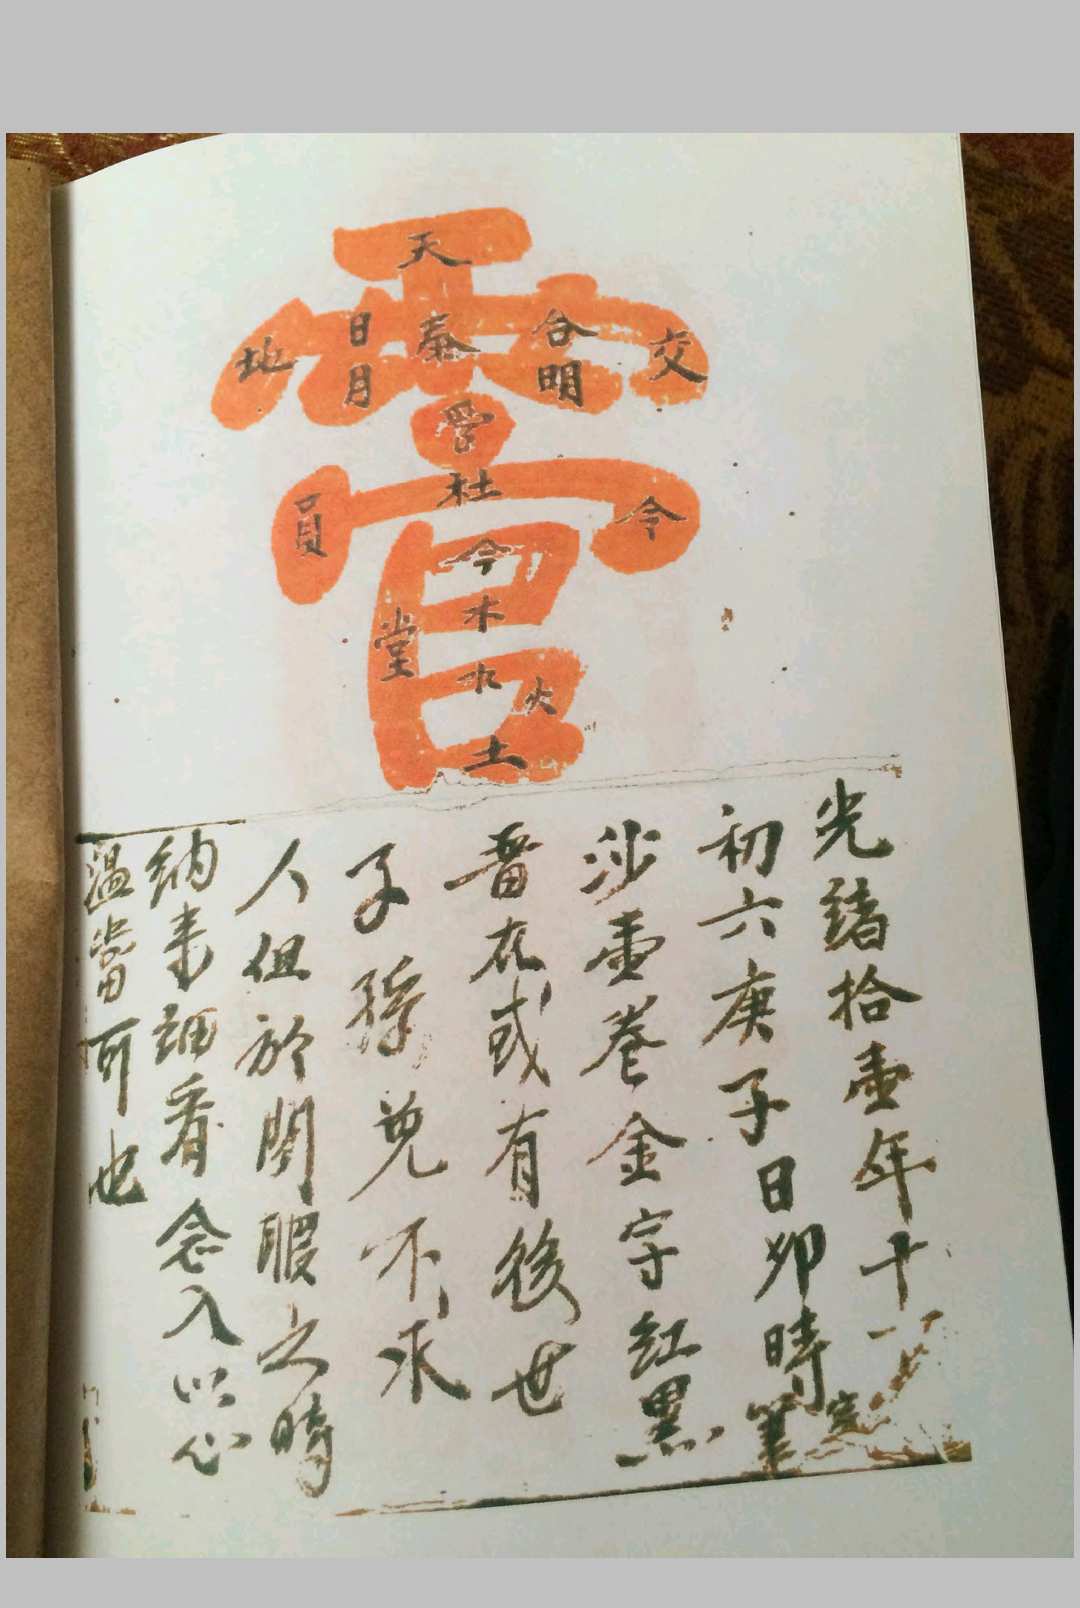 天
地 日月 奉 合明 交
社
員 今 令
木
堂 水 火
土
光緒拾壺年十一
初六庚子日卯時筆完
沙壺卷金字紅黑
吾在或有後世
子孫兑不求
人但於閒暇之時
納来細看念入以心
温當可也